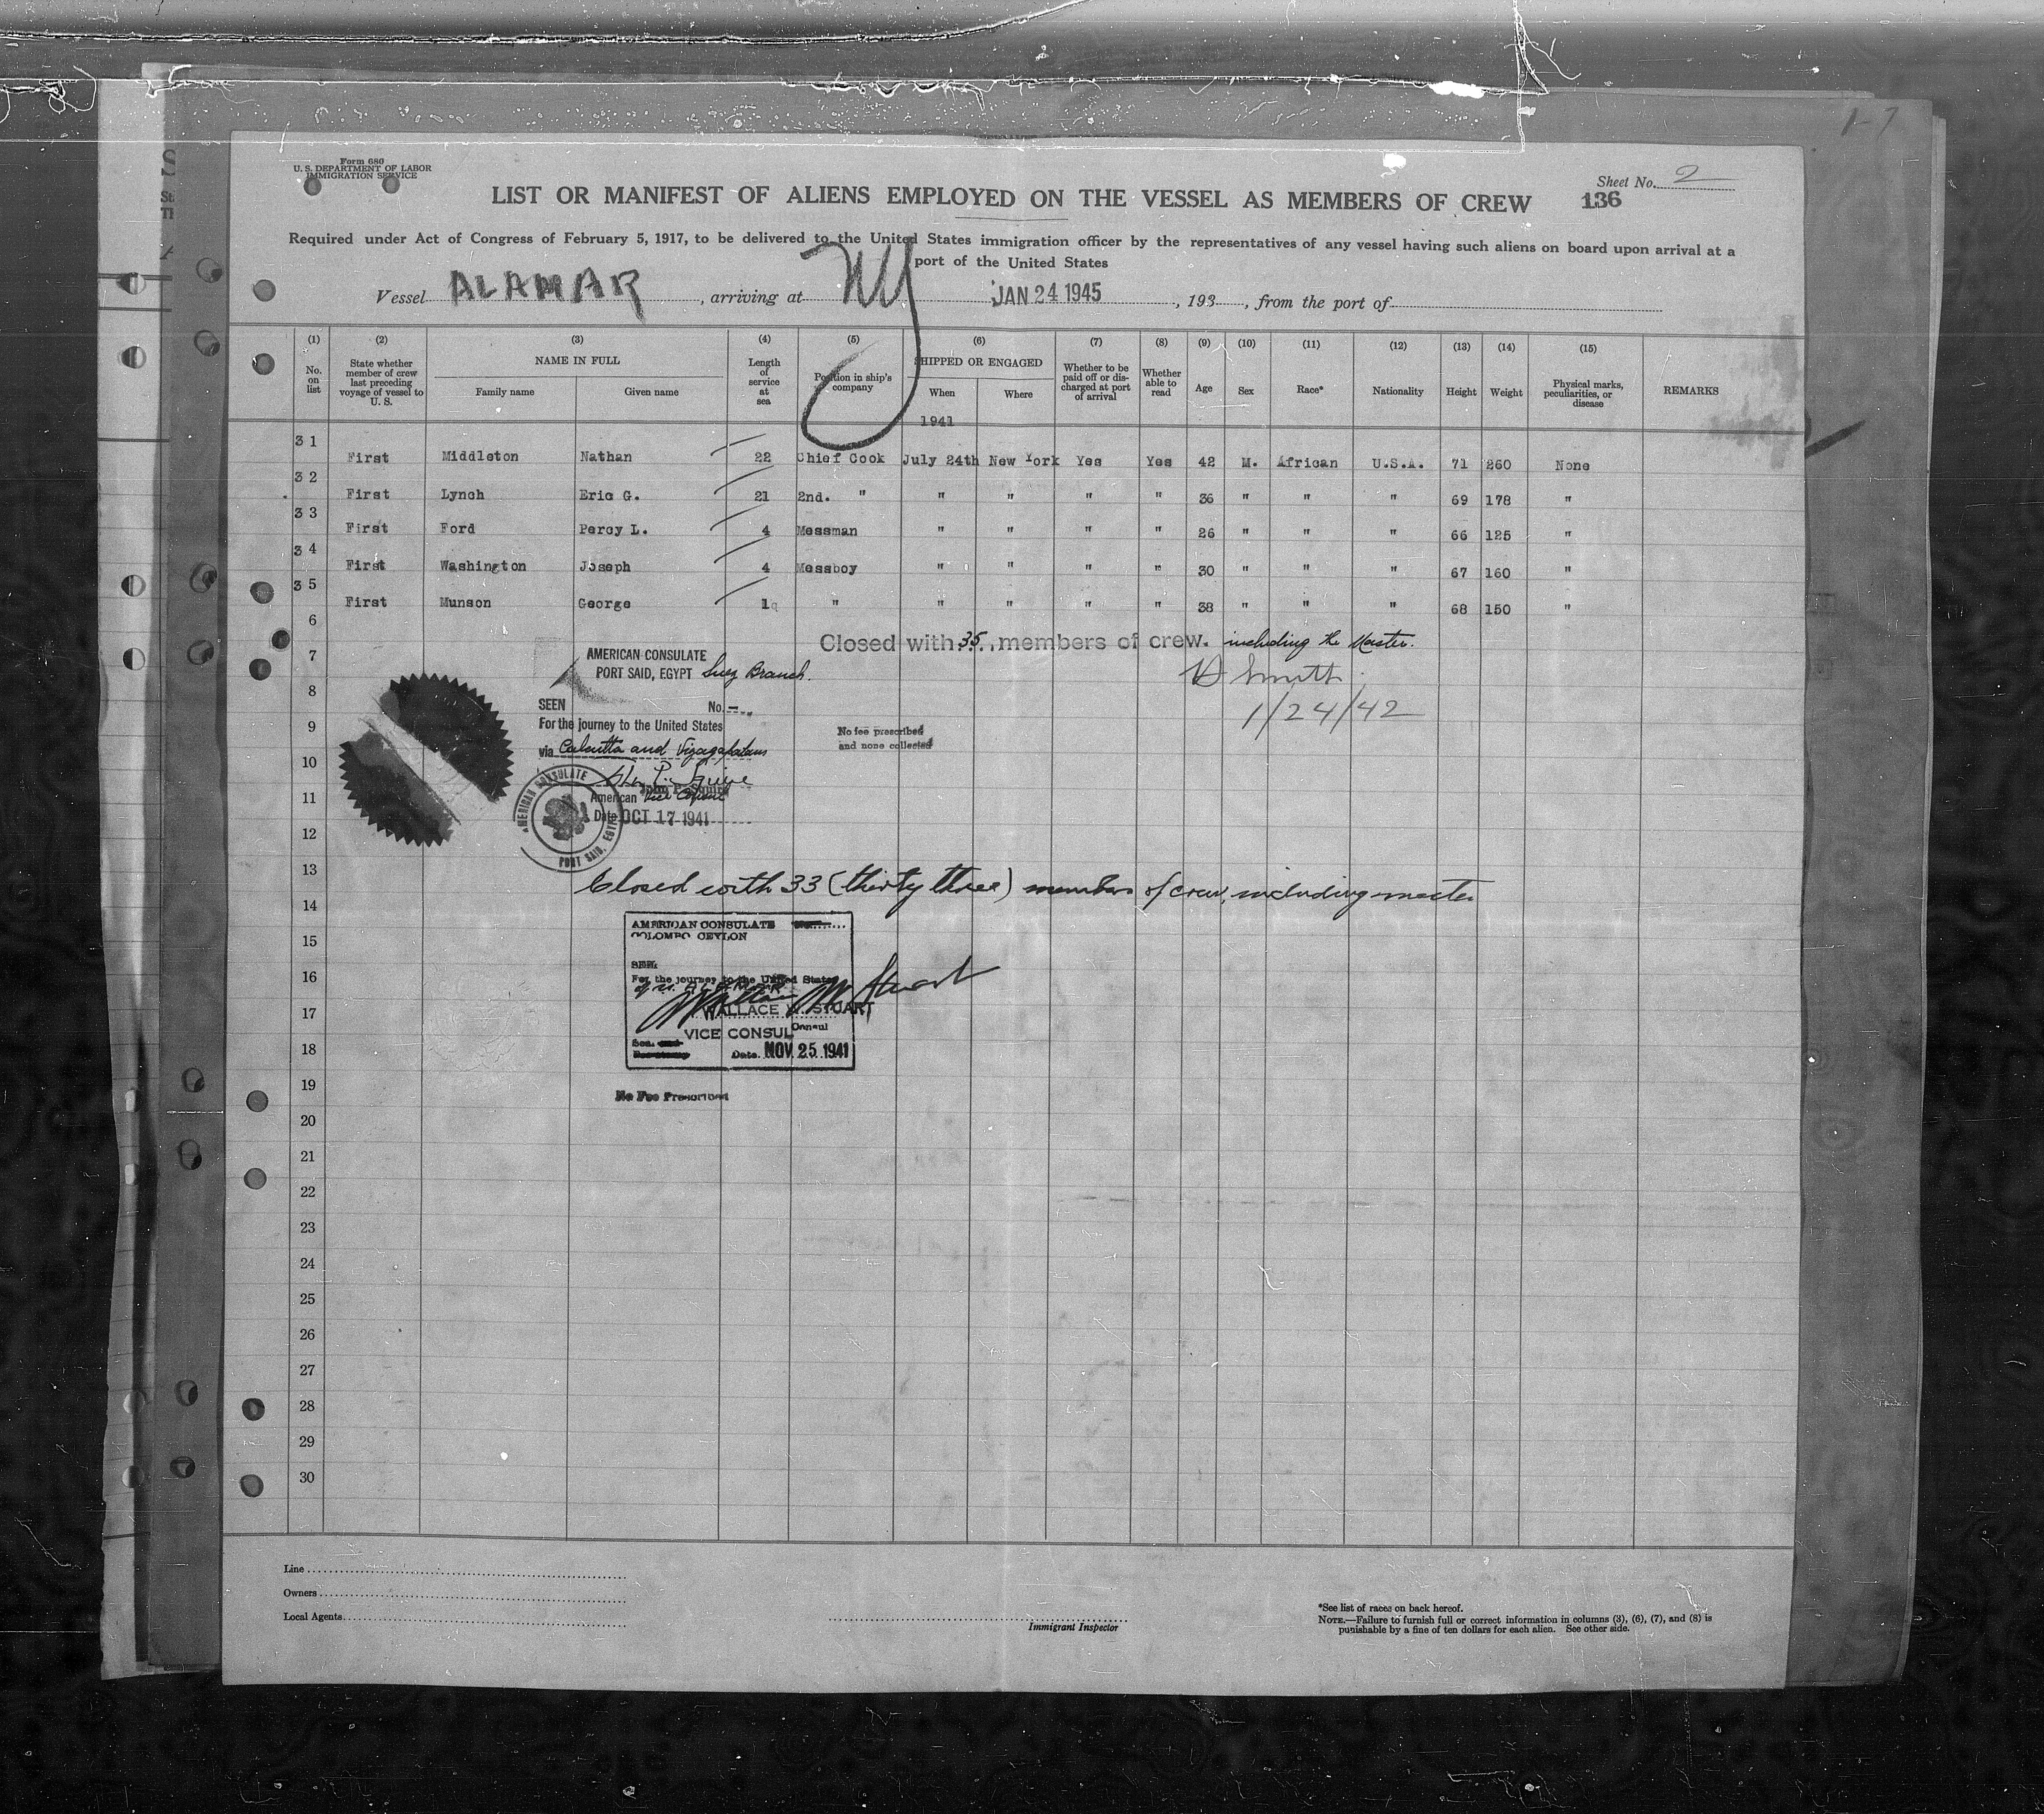 1-7
Form 680
U. S. DEPARTMENT OF LABOR
IMMIGRATION SERVICE
Sheet No. 2
LIST OR MANIFEST OF ALIENS EMPLOYED ON THE VESSEL AS MEMBERS OF CREW 136
Required under Act of Congress of February 5, 1917, to be delivered to the United States immigration officer by the representatives of any vessel having such aliens on board upon arrival at a
port of the United States
Vessel ALAMAR, arriving at NY JAN 24 1945, 193 , from the port of
(1) (2) (3) (4) (5) (6) (7) (8) (9) (10) (11) (12) (13) (14) (15)
No. on list
State whether member of crew last preceding voyage of vessel to U. S.
NAME IN FULL
Family name Given name
Length of service at sea
Position in ship's company
SHIPPED OR ENGAGED
When Where
Whether to be paid off or discharged at port of arrival
Whether able to read
Age
Sex
Race*
Nationality
Height
Weight
Physical marks, peculiarities, or disease
REMARKS
1941
31 First Middleton Nathan 22 Chief Cook July 24th New York Yes Yes 42 M. African U.S.A. 71 260 None
32 First Lynch Eric G. 21 2nd. " " " " " 36 " " " 69 178 "
33 First Ford Percy L. 4 Messman " " " " 26 " " " 66 125 "
34 First Washington Joseph 4 Messboy " " " " 30 " " " 67 160 "
35 First Munson George 1 " " " " " 38 " " " 68 150 "
6
Closed with 35, members of crew. including the Master.
7
AMERICAN CONSULATE
PORT SAID, EGYPT Suez Branch.
D Smith
8
SEEN No. —
1/24/42
9
For the journey to the United States
No fee prescribed
and none collected
via Calcutta and Vizagapatam
10
John P. Squire
11
American Vice Consul
Date OCT 17 1941
AMERICAN CONSULATE
PORT SAID, EGYPT
12
13
Closed with 33 (thirty three) members of crew, including master
14
AMERICAN CONSULATE
COLOMBO CEYLON
15
SEEN
16
For the journey to the United States
17
WALLACE W. STUART
VICE CONSUL Consul
18
Date. NOV 25 1941
19
No Fee Prescribed
20
21
22
23
24
25
26
27
28
29
30
Line
Owners
Local Agents
Immigrant Inspector
*See list of races on back hereof.
NOTE.—Failure to furnish full or correct information in columns (3), (6), (7), and (8) is
punishable by a fine of ten dollars for each alien. See other side.